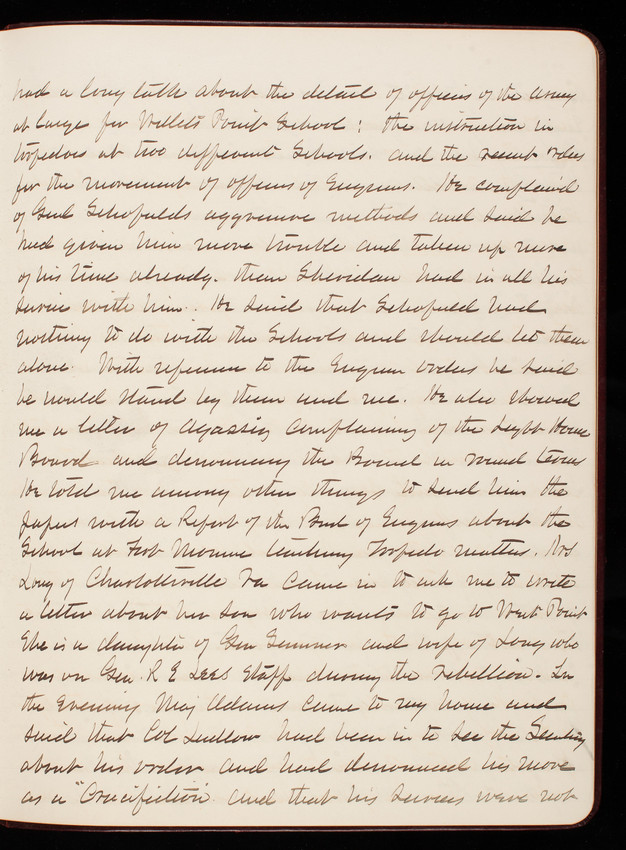 had a long talk about the detail of officers of the Army
at large for Willets Point School; the instruction in
torpedoes at two different Schools. and the recent orders
for the movement of officers of Engineers. He complained
of Genl Schofields aggressive methods and said he
had given him more trouble and taken up more
of his time already. than Sheridan had in all his
service with him. He said that Schofield had
nothing to do with the Schools and should let them
alone. With reference to the Engineer orders he said
he would stand by them and me. He also showed
me a letter of Agassiz complaining of the Light House
Board and denouncing the Board in round terms
He told me among other things to send him the
papers with a Report of the Bord of Engineers about the
School at Fort Monroe teaching Torpedo matters. Mrs
Long of Charlottsville Va came in to ask me to write
a letter about her son who wants to go to West Point
She is a daughter of Gen Sumner and wife of Long who
was on Gen. R E Lees Staff during the rebellion. In
the Evening Maj Adams came to my house and
said that Col Ludlow had been in to see the Secretary
about his order and had denounced his move
as a "Crucifiction and that his services were not